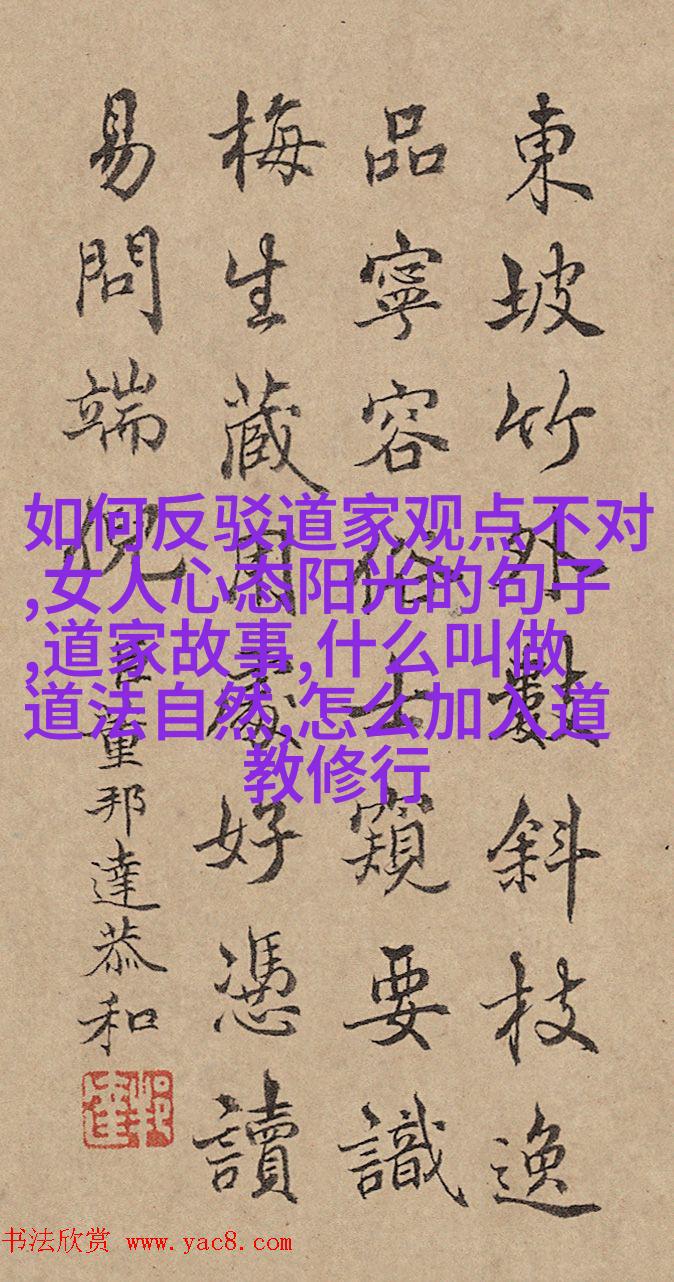 東坡竹外數斜枝逸
品寧容俗士窺要識
梅生藏用處好憑讀
易問端倪
臣董邦達恭和
如何反驳道家观点不对
,女人心态阳光的句子
,道家故事,什么叫做
道法自然,怎么加入道
教修行
书法欣赏 www.yac8.com